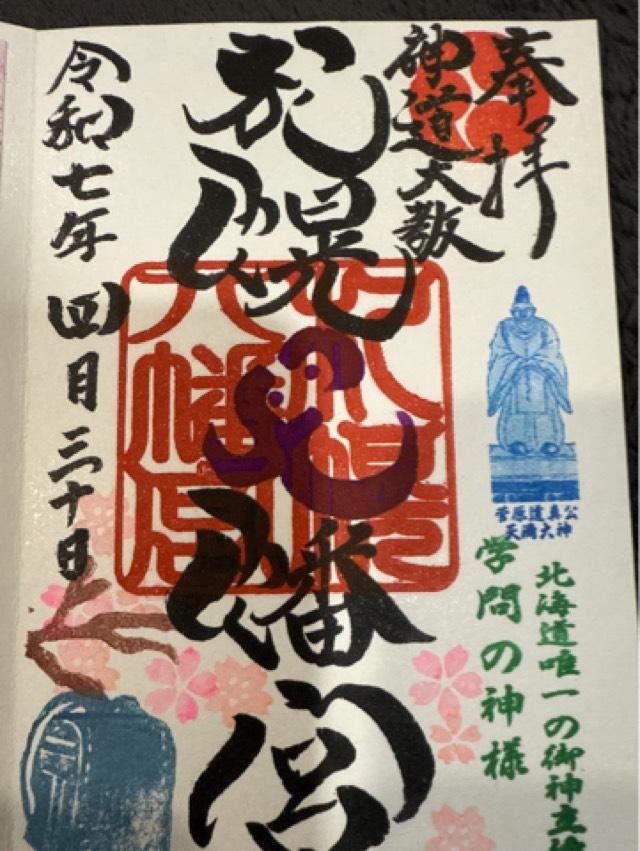 奉拝
神道大教
札幌八幡宮
札幌
八幡宮
令和七年四月三十日
菅原道真公
天満大神
学問の神様
北海道唯一の御神主